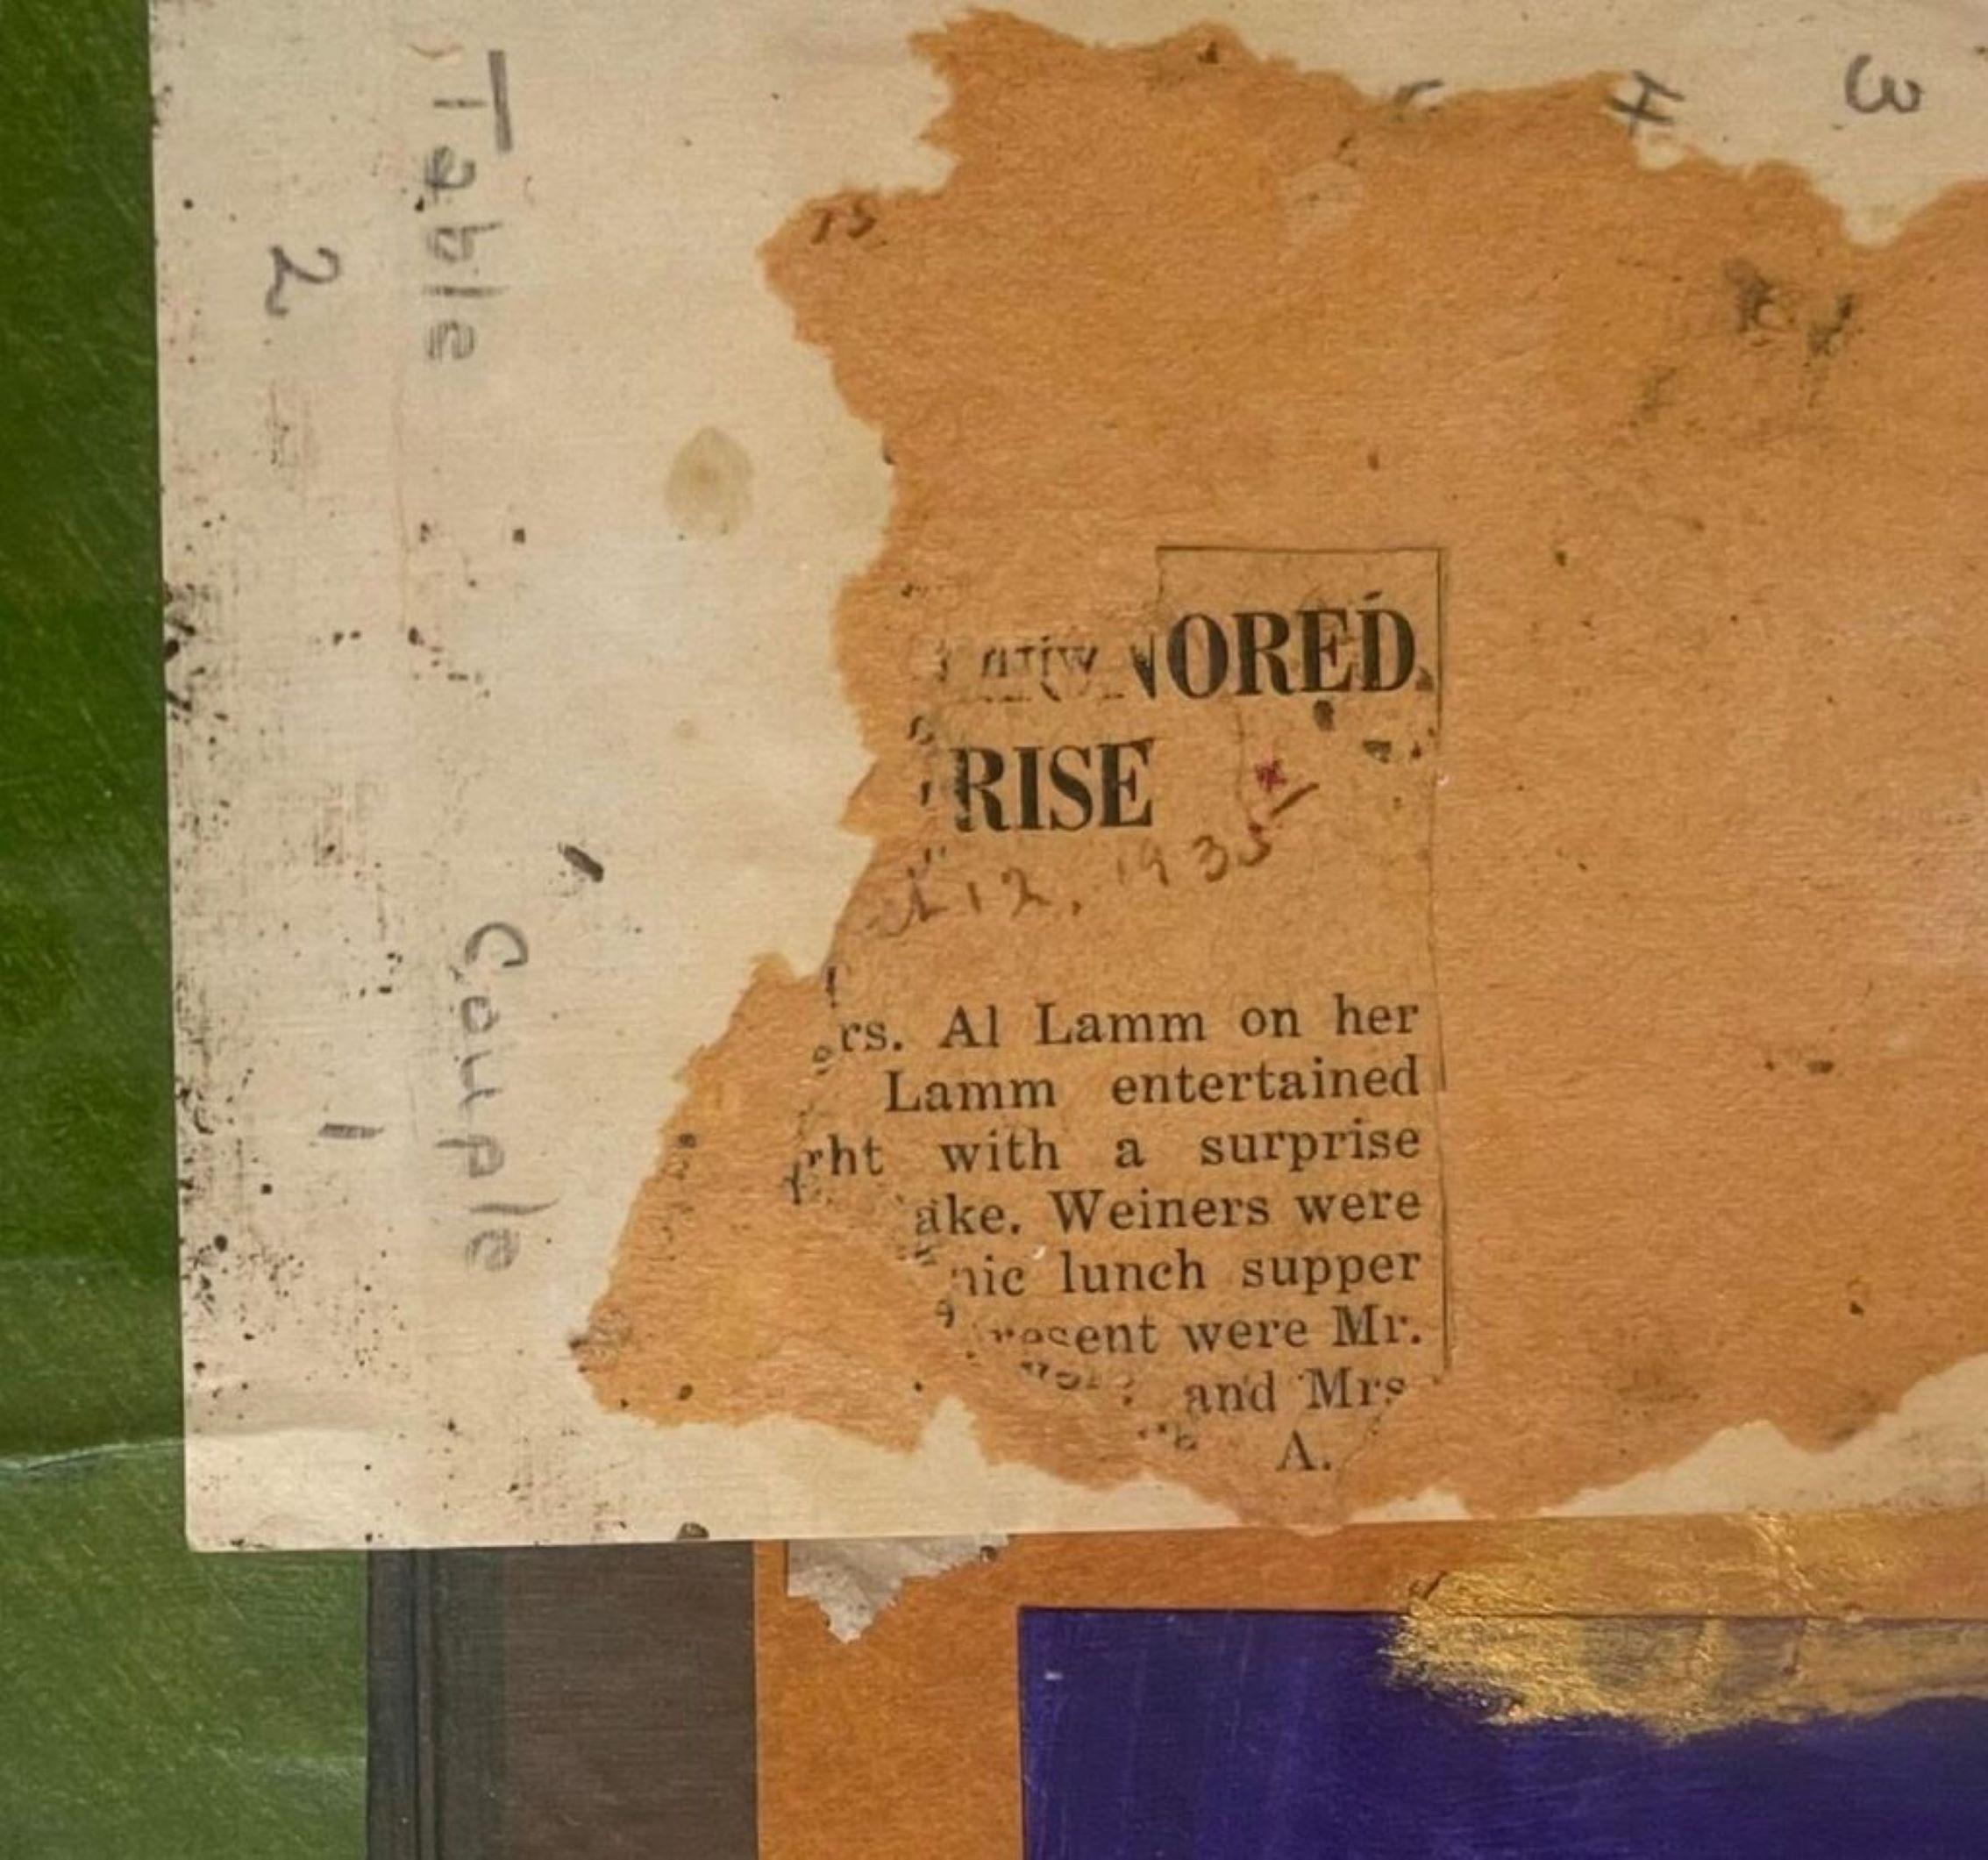 3
4
Table
2
Couple
1
NORED
RISE
12, 1935
rs. Al Lamm on her
Lamm entertained
ght with a surprise
ake. Weiners were
nic lunch supper
resent were Mr.
and Mrs
A.